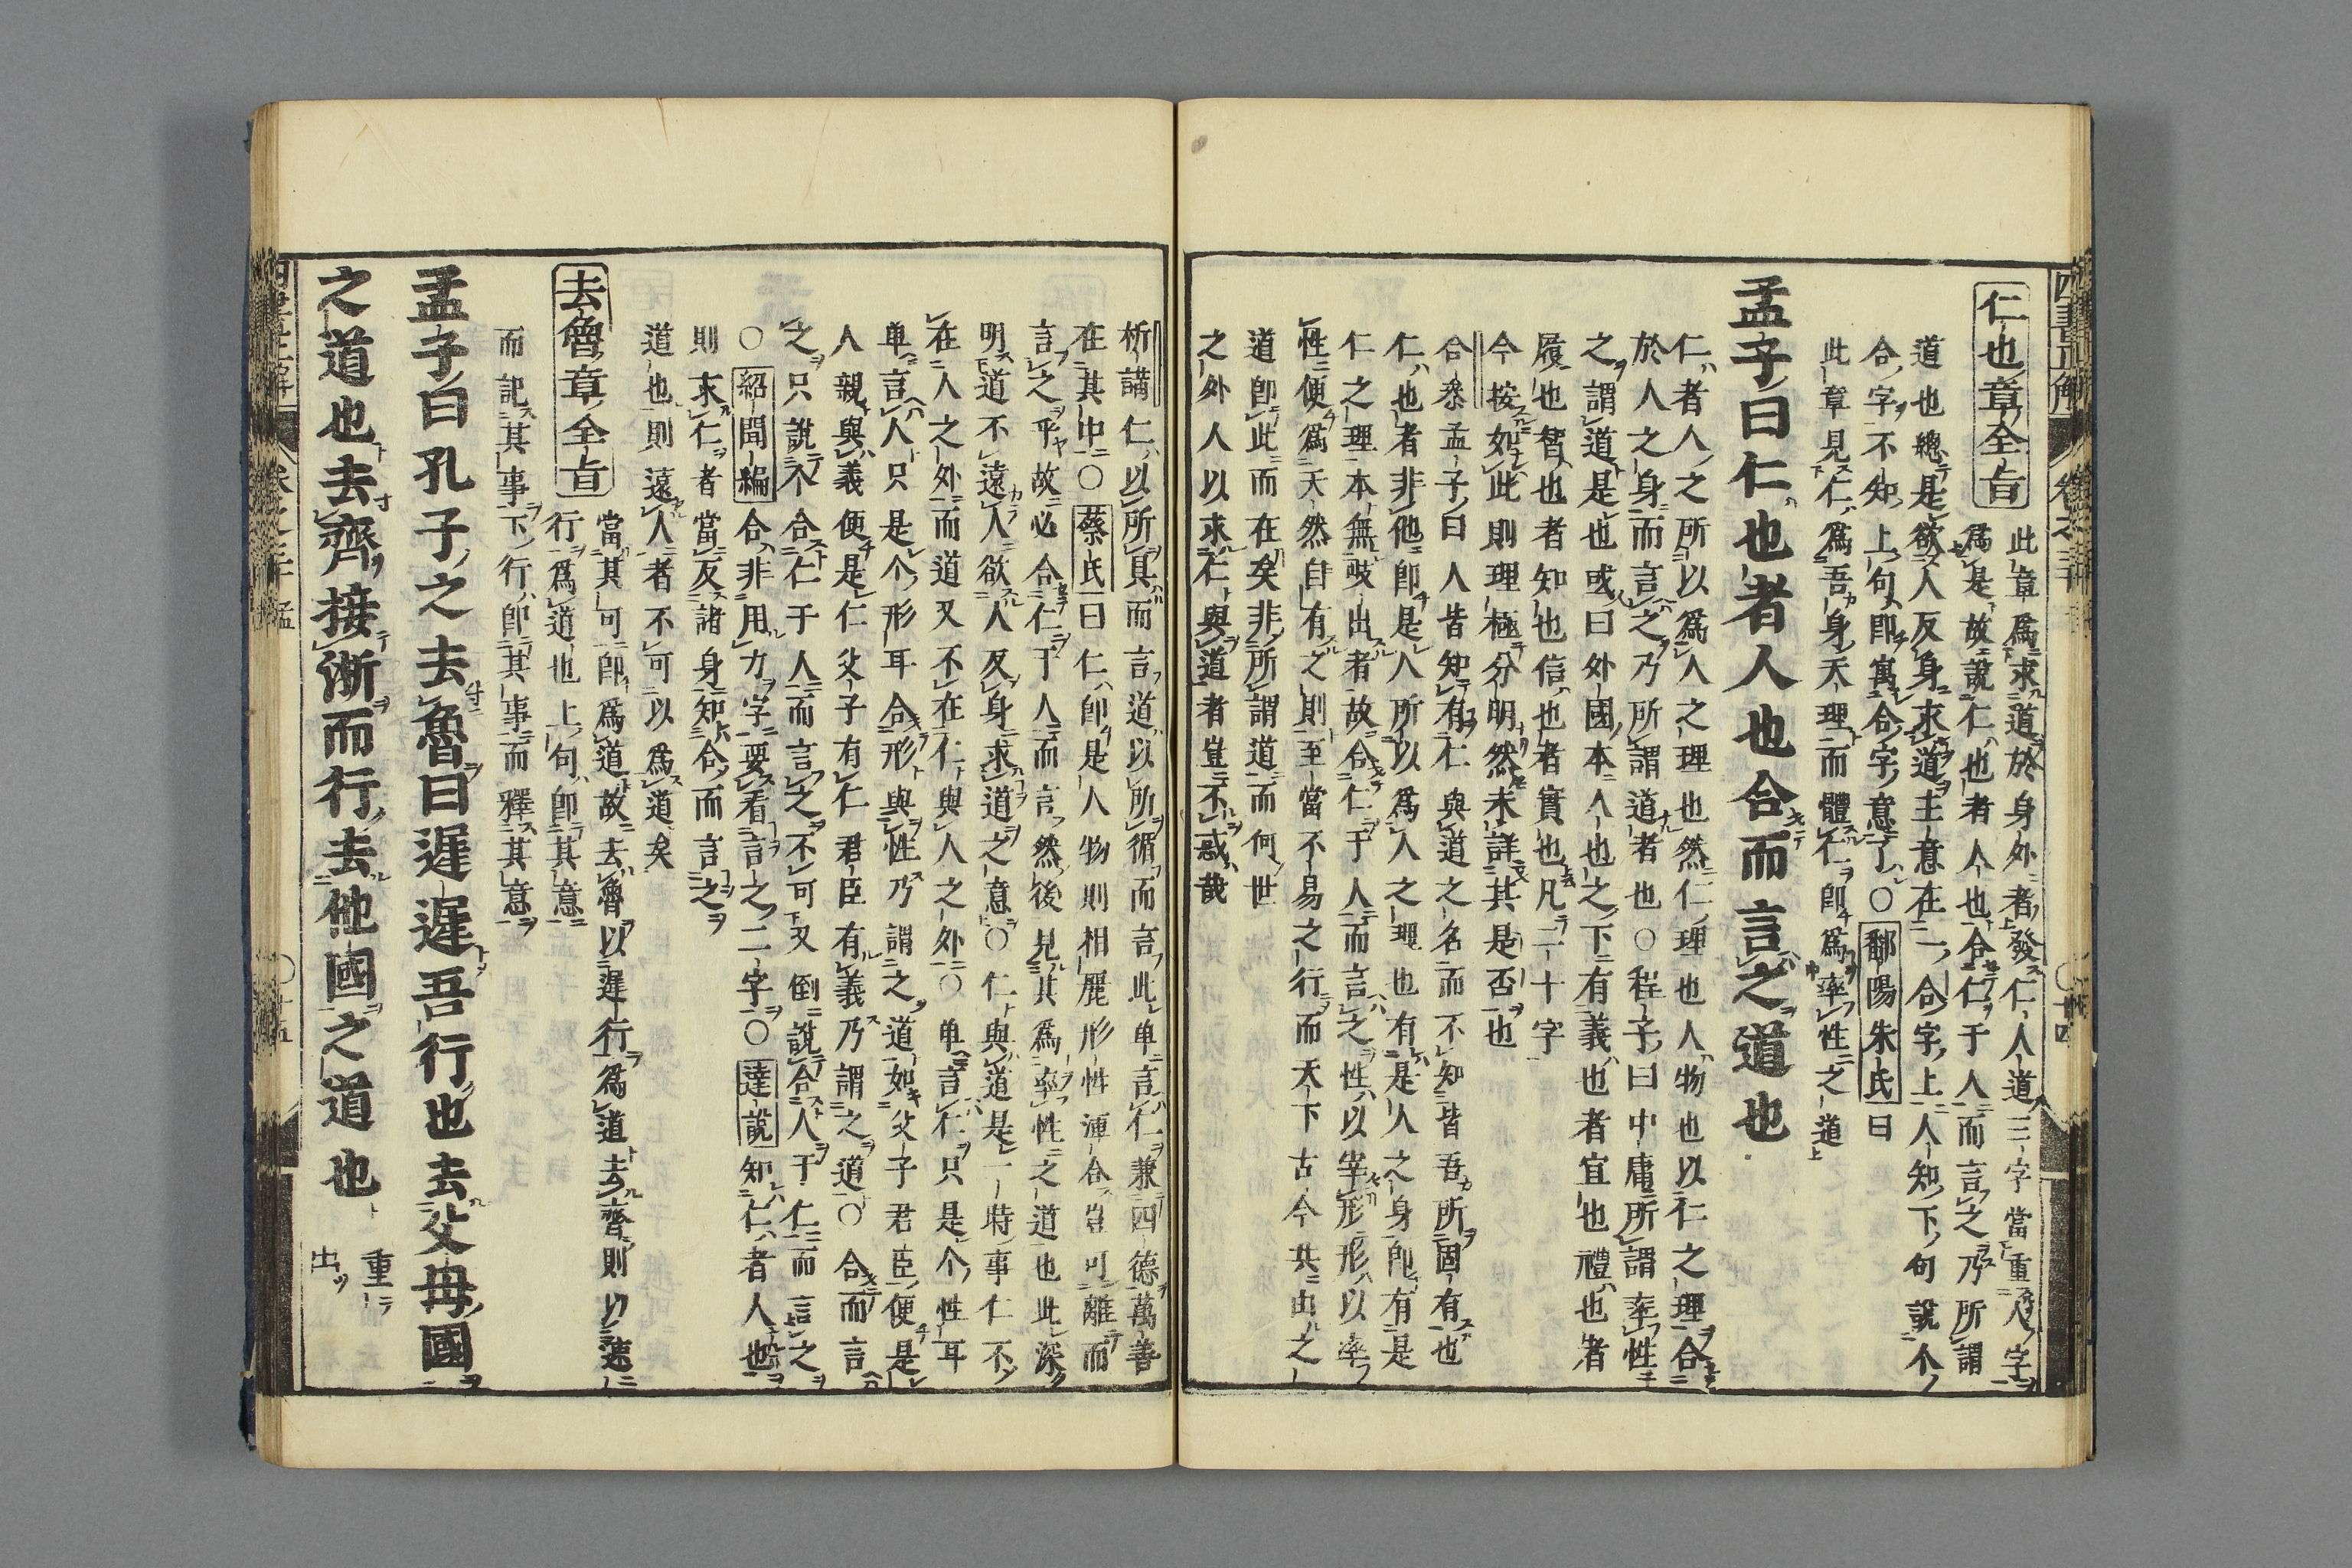 四書正解
仁也章全旨
此章爲求道於身外者發仁人道三字當重人字
爲是故說仁也者人也合仁于人而言之乃所謂
道也總是欲人反身求道主意在一合字上人知下句說个
合字不知上句卽寓合字意了○鄱陽朱氏曰
此章見仁爲吾身天理而體仁卽爲率性之道
孟子曰仁也者人也合而言之道也
仁者人之所以爲人之理也然仁理也人物也以仁之理合
於人之身而言之乃所謂道者也○程子曰中庸所謂率性
之謂道是也或曰外國本人也之下有義也者宜也禮也者
履也智也者知也信也者實也凡二十字
今按如此則理極分明然未詳其是否也
合參孟子曰人皆知有仁與道之名而不知皆吾所固有也
仁也者非他卽是人所以爲人之理也有是人之身卽有是
仁之理本無歧出者故合仁于人而言之性以宰形形以率
性便爲天然自有之則至當不易之行而天下古今共由之
道卽此而在矣非所謂道而何世
之外人以求仁與道者豈不惑哉
析講仁以所具而言道以所循而言此单言仁兼四德萬善
在其中○蔡氏曰仁卽是人物則相麗形性渾合豈可離而
言之乎故必合仁于人而言然後見其爲率性之道也此深
明道不遠人欲人反身求道之意○仁與道是一時事仁不
在人之外而道又不在仁與人之外○单言仁只是个性耳
单言人只是个形耳合形與性乃謂之道如父子君臣便是
人親與義便是仁父子有仁君臣有義乃謂之道○合而言
之只說个合仁于人而言之不可又倒說合人于仁而言之
○紹聞編合非用力字要看言之二字○達說知仁者人也
則求仁者當反諸身知合而言之
道也則遠人者不可以爲道矣
去魯章全旨
當其可卽爲道故去魯以遲行爲道去齊則以速
行爲道也上句卽其意
而記其事下行卽其事而釋其意
孟子曰孔子之去魯曰遲遲吾行也去父母國
之道也去齊接淅而行去他國之道也
重
出